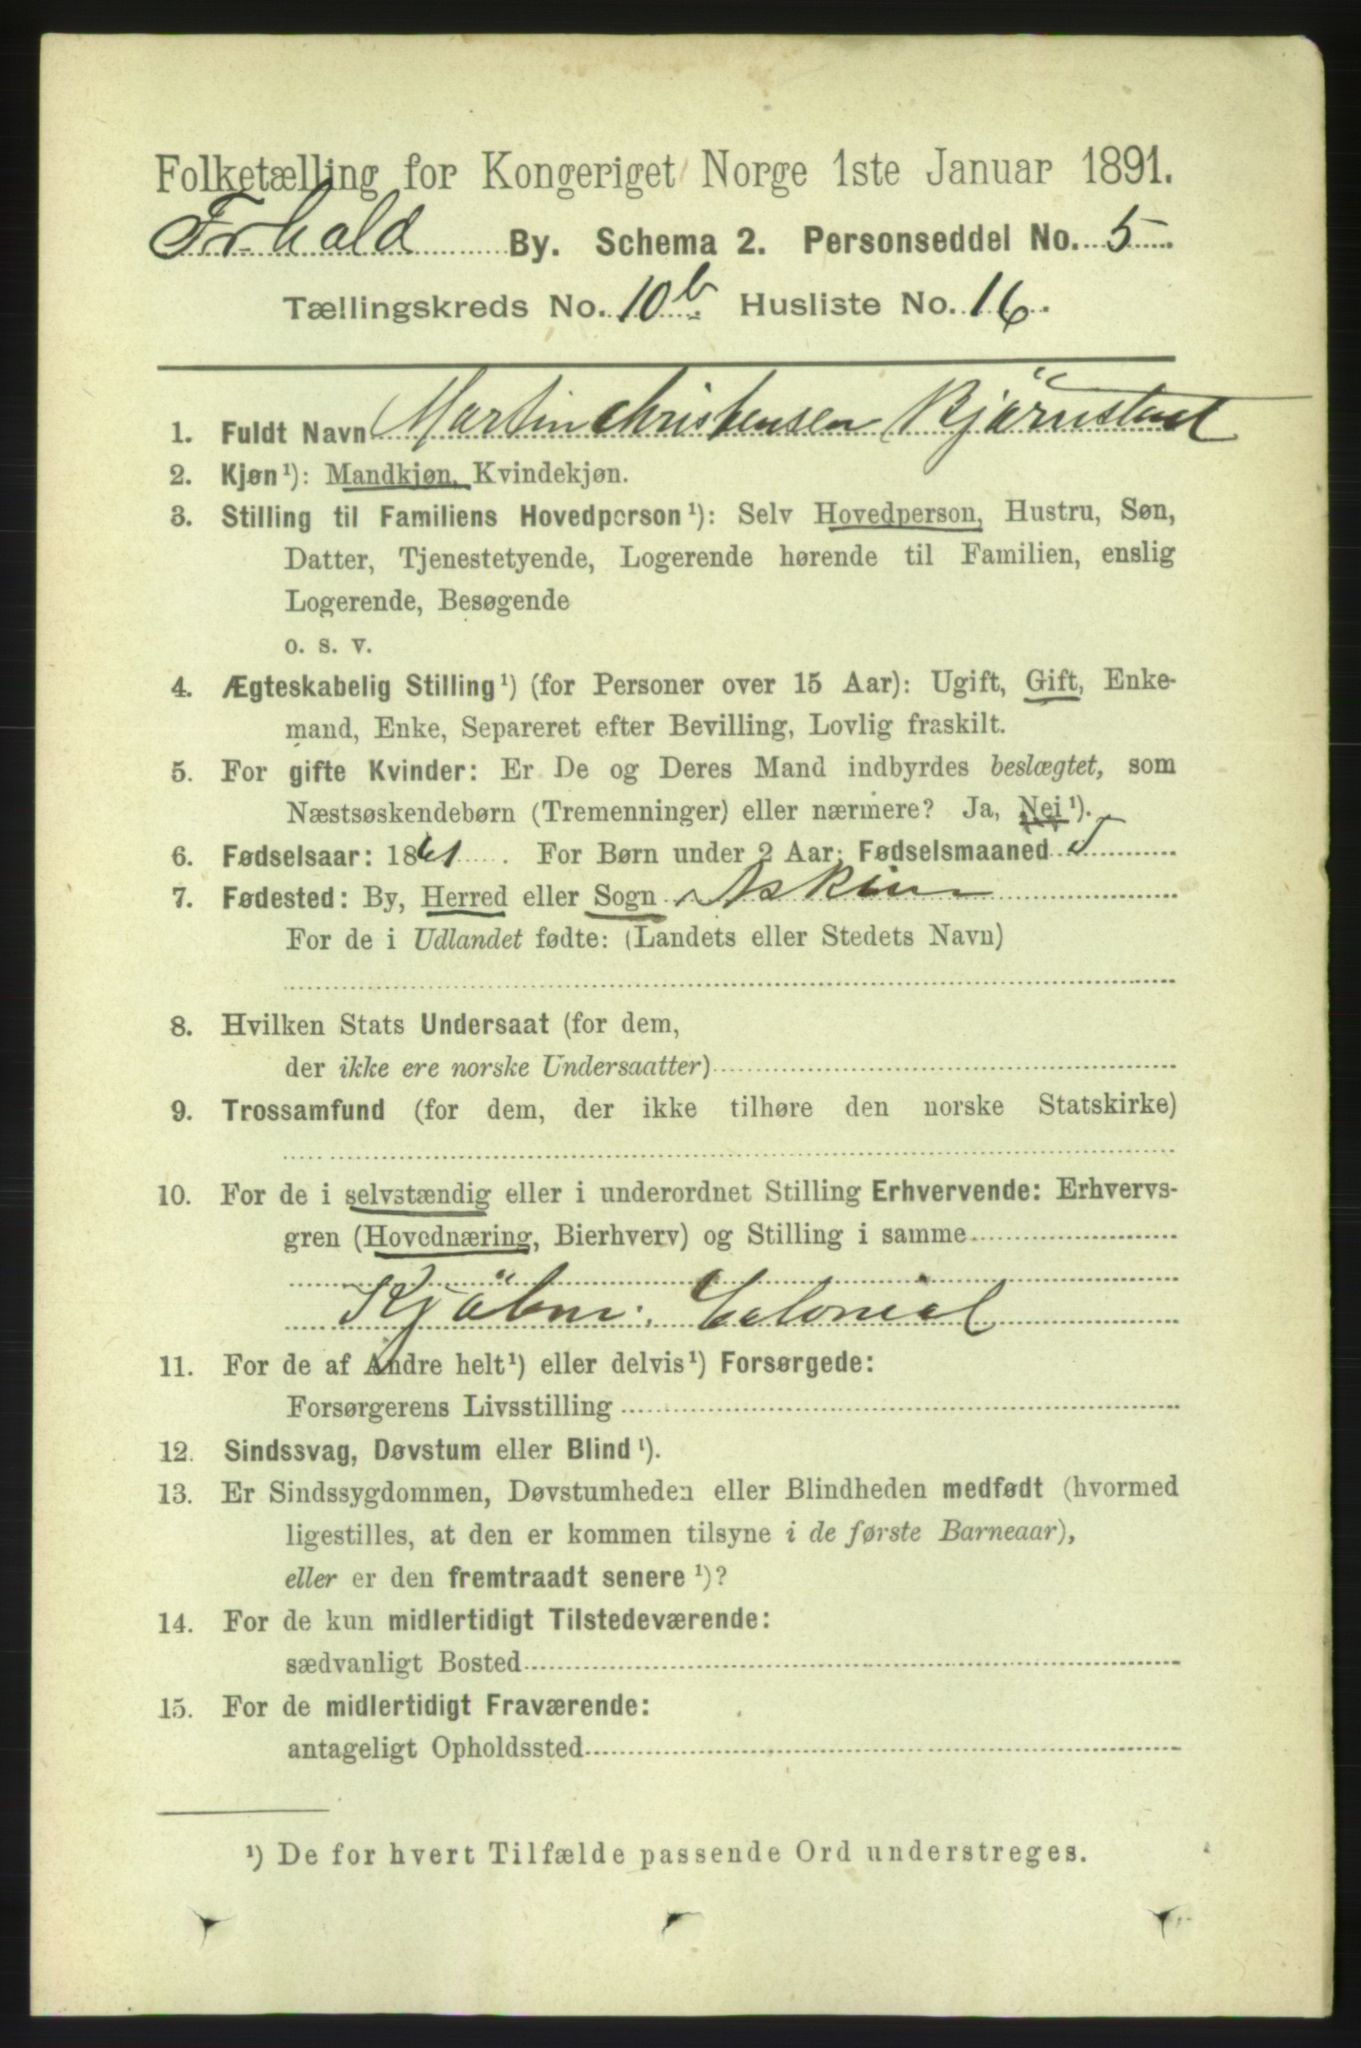 Folketælling for Kongeriget Norge 1ste Januar 1891.
Frhald By. Schema 2. Personseddel No. 5
Tællingskreds No. 10b. Husliste No. 16.
1. Fuldt Navn Martin Christensen Bjørnstad
2. Kjøn¹): Mandkjøn, Kvindekjøn.
3. Stilling til Familiens Hovedperson¹): Selv Hovedperson, Hustru, Søn,
Datter, Tjenestetyende, Logerende hørende til Familien, enslig
Logerende, Besøgende
o. s. v.
4. Ægteskabelig Stilling¹) (for Personer over 15 Aar): Ugift, Gift, Enke-
mand, Enke, Separeret efter Bevilling, Lovlig fraskilt.
5. For gifte Kvinder: Er De og Deres Mand indbyrdes beslægtet, som
Næstsøskendebørn (Tremenninger) eller nærmere? Ja, Nei¹).
6. Fødselsaar: 1861. For Børn under 2 Aar: Fødselsmaaned
7. Fødested: By, Herred eller Sogn Askim
For de i Udlandet fødte: (Landets eller Stedets Navn)
8. Hvilken Stats Undersaat (for dem,
der ikke ere norske Undersaatter)
9. Trossamfund (for dem, der ikke tilhøre den norske Statskirke)
10. For de i selvstændig eller i underordnet Stilling Erhvervende: Erhvervs-
gren (Hovednæring, Bierhverv) og Stilling i samme
Kjöbm. Colonial
11. For de af Andre helt¹) eller delvis¹) Forsørgede:
Forsørgerens Livsstilling
12. Sindssvag, Døvstum eller Blind¹).
13. Er Sindssygdommen, Døvstumheden eller Blindheden medfødt (hvormed
ligestilles, at den er kommen tilsyne i de første Barneaar),
eller er den fremtraadt senere¹)?
14. For de kun midlertidigt Tilstedeværende:
sædvanligt Bosted
15. For de midlertidigt Fraværende:
antageligt Opholdssted
¹) De for hvert Tilfælde passende Ord understreges.